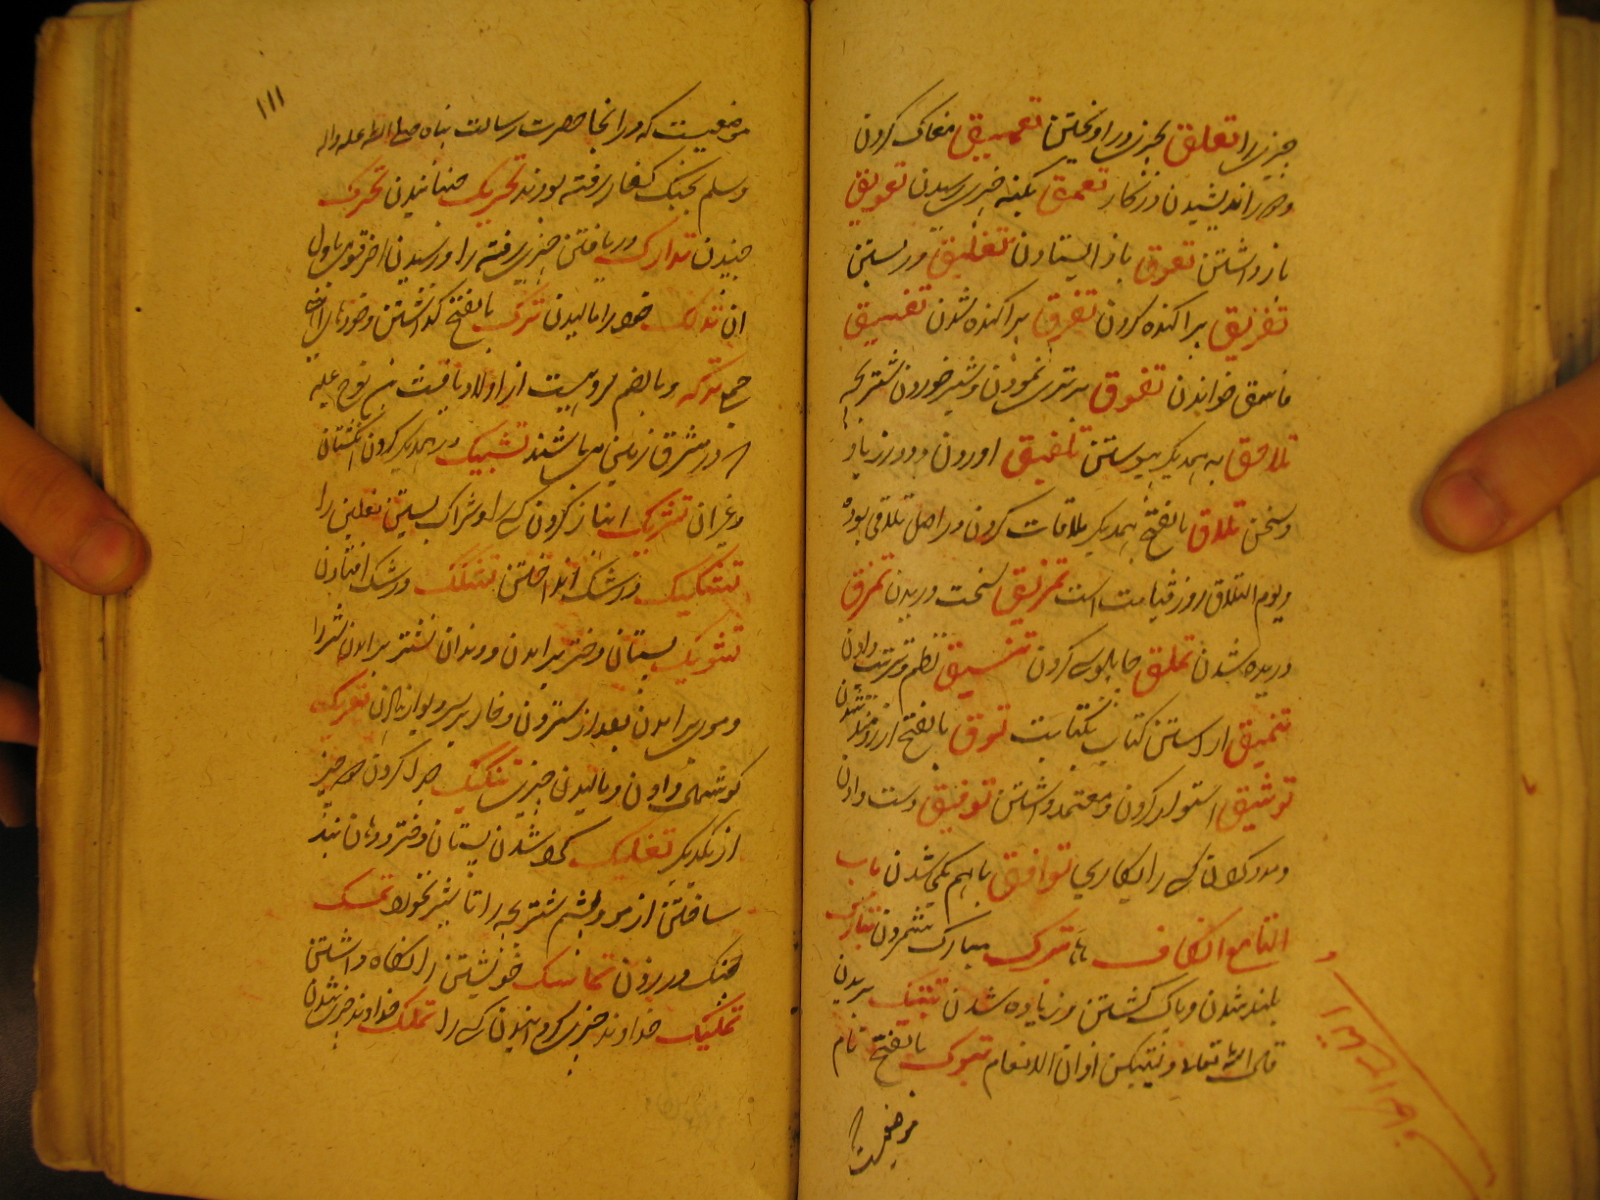 چیزیرا تعلق بچیزی در اویختن تعمیق مغاک کردن
و دور اندیشیدن در کار تعمق بکنه چیزی رسیدن تعویق
باز داشتن تعوق باز ایستادن تغلیق در بستن
تفریق پراکنده کردن تفرق پراکنده شدن تفسیق
فاسق خواندن تفوق برتری نمودن و شیر خوردن شتر بچه
تلاحق به همدیگر پیوستن تلفیق اوردن و دوز
و سخن تلاق بالفتح بهمدیگر ملاقات کردن در اصل تلاقی بوده
و یوم التلاق روز قیامت است تمزیق سخت دریدن تمزق
دریده شدن تملق چاپلوسی کردن تنسیق نظم و ترتیب دادن
تنمیق اراستن کتاب بکتابت توق بالفتح ارزومند شدن
توثیق استوار کردن و معتمد داشتن توفیق دست دادن
و مدد کردن کسی را بکاری توافق باهم یکی شدن باب
التاء مع الکاف تبرک مبارک شمردن تبارک
بلند شدن و پاک گشتن و زیاده شدن تبتیک بریدن
قال الله تعالی و لیبتکن اذان الانعام تبوک بالفتح نام
موضعیست
۱۱۱
موضعیست که در انجا حضرت رسالت پناه صلی الله علیه واله
وسلم بجنک کفار رفته بودند تحریک جنبانیدن تحرک
جنبیدن تدارک دریافتن چیزی رفته را و رسیدن اخر قوی باول
ان تدلک خود را مالیدن ترک بالفتح گذاشتن و خودها
جمع ترکه و بالضم گروهیست از اولاد یافث بن نوح علیه
در مشرق زمین می باشند تشبیک در همدیگر کردن انگشتان
و غیر ان تشریک انباز کردن کسی را و شراک بستن نعلین را
تشکیک در شک انداختن تشکک در شک افتادن
تشویک پستان دختر برامدن و دندان نشتر برامدن شتر را
و موی برامدن بعد از ستردن و خار بر سر دیوار نهادن تعریک
گوشمالی دادن و مالیدن چیزی تفکیک جدا کردن دو چیز
از یکدیگر تفلیک گرد شدن پستان دختر و دهان بند
ساختن از مو و پشم شتر بچه را تا شیر نخورد تمسک
چنک در زدن تماسک خویشتن را نگاه داشتن
تملیک خداوند چیزی گردانیدن کسی را تملک خداوند چیزی شدن